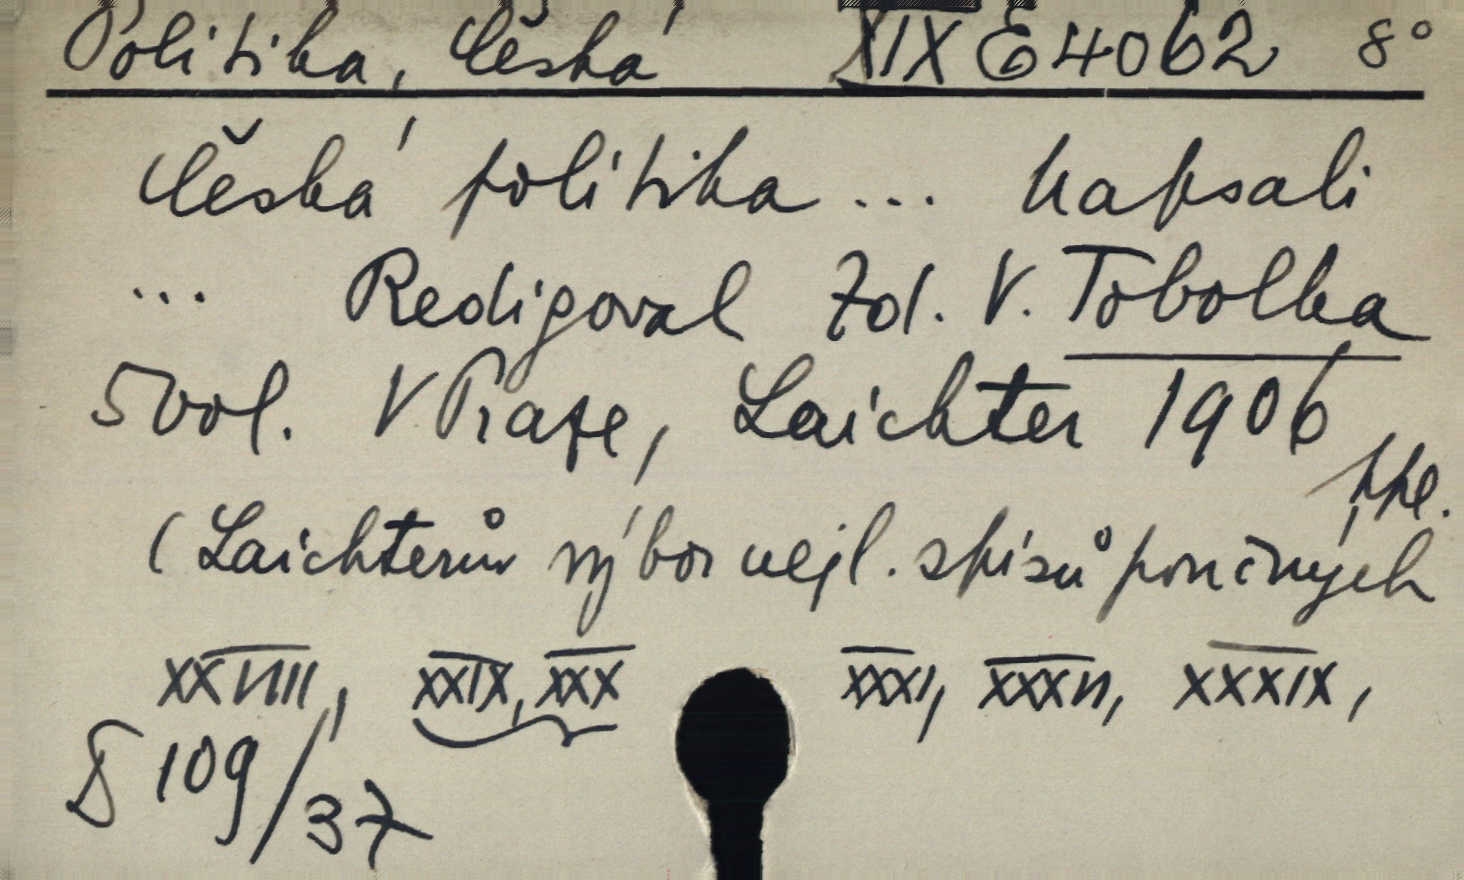 Politika, česká XIX E 4062 8°
Česká politika ... Napsali
... Redigoval Zd. V. Tobolka
5 vol. V Praze, Laichter 1906
(Laichterův výbor nejl. spisů poučných
XXVIII, XXIX, XXX XXXI, XXXII, XXXIX,
109/37